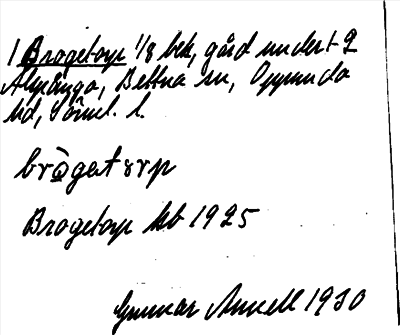 1 Brogetorp 1/8 hek, gård under 2
Alspånga, Bettna sn, Oppunda
hd, Söml. l.
brògatörp
Brogetorp kb 1925
Gunnar Amell 1930